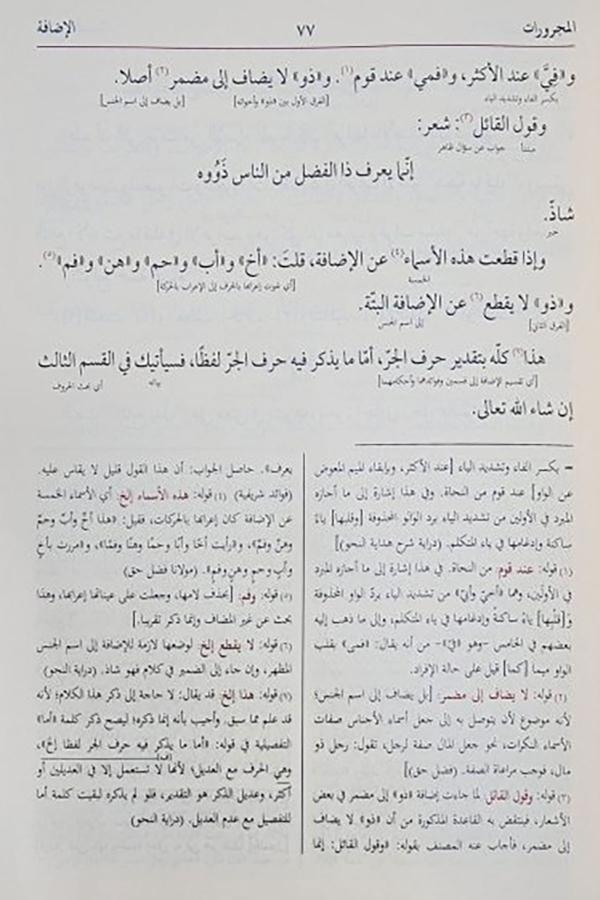 المجرورات ٧٧ الإضافة
و«فِيَّ» عند الأكثر، و«فمي» عند قوم(١). و«ذو» لا يضاف إلى مضمر(٢) أصلا.
بكسر الفاء وتشديد الياء [الفرق الأول بين «ذو» وأخواته] [بل يضاف إلى اسم الجنس]
وقول القائل(٣): شعر:
مبتدأ جواب عن سؤال ظاهر
إنّما يعرف ذا الفضل من الناس ذَوُوه
شاذّ.
خبر
وإذا قطعت هذه الأسماء(٤) عن الإضافة، قلتَ: «أخ» و«أب» و«حم» و«هن» و«فم»(٥).
الخمسة [أي تحوّل إعرابها بالحرف إلى الإعراب بالحركة]
و«ذو» لا يقطع(٦) عن الإضافة البتّة.
[الفرق الثاني] إلى اسم الجنس
هذا(٧) كلّه بتقدير حرف الجرّ، أمّا ما يذكر فيه حرف الجرّ لفظًا، فسيأتيك في القسم الثالث
[أي تقسيم الإضافة إلى قسمين وفوائدهما وأحكامهما] بيانه أي بحث الحروف
إن شاء الله تعالى.
= بكسر الفاء وتشديد الياء [عند الأكثر، وبإبقاء الميم المعوض
عن الواو] عند قوم من النحاة. وفي هذا إشارة إلى ما أجازه
المبرد في الأولين من تشديد الياء برد الواو المحذوفة [وقلبها] ياءً
ساكنة وإدغامها في ياء المتكلم. (دراية شرح هداية النحو)]
(١) قوله: عند قوم: من النحاة. في هذا إشارة إلى ما أجازه المبرد
في الأولَين، وهما «أخيّ وأبيّ» من تشديد الياء بردّ الواو المحذوفة
و[قلبها] ياءً ساكنةً وإدغامها في ياء المتكلم، وإلى ما ذهب إليه
بعضهم في الخامس -وهو «فيّ»- من أنه يقال: «فمي» بقلب
الواو ميما [كما] قيل على حالة الإفراد.
(٢) قوله: لا يضاف إلى مضمر: [بل يضاف إلى اسم الجنس؛
لأنه موضوع لأن يتوصل به إلى جعل أسماء الأجناس صفات
الأسماء النكرات، نحو جعل المال صفة لرجل، تقول: رجل ذو
مال، فوجب مراعاة الصفة. (فضل حق)]
(٣) قوله: وقول القائل: لما جاءت إضافة «ذو» إلى مضمر في بعض
الأشعار، فينتقض به القاعدة المذكورة من أن «ذو» لا يضاف
إلى مضمر، فأجاب عنه المصنف بقوله: «وقول القائل: إنما
يعرف». حاصل الجواب: أن هذا القول قليل لا يقاس عليه.
(فوائد شريفية) (٤) قوله: هذه الأسماء إلخ: أي الأسماء الخمسة
عن الإضافة كان إعرابها بالحركات، فقيل: «هذا أخٌ وأبٌ وحمٌ
وهنٌ وفمٌ»، و«رأيت أخًا وأبًا وحمًا وهنًا وفمًا»، و«مررت بأخٍ
وأبٍ وحمٍ وهنٍ وفمٍ». (مولانا فضل حق)
(٥) قوله: وفم: [بحذف لامها، وجعلت على عيناتها إعرابها، وهذا
بحث عن غير المضاف وإنما ذكر تقريبا.]
(٦) قوله: لا يقطع إلخ: لوضعها لازمة للإضافة إلى اسم الجنس
المظهر، وإن جاء إلى الضمير في كلام فهو شاذ. (دراية النحو)
(٧) قوله: هذا إلخ: قد يقال: لا حاجة إلى ذكر هذا الكلام؛ لأنه
قد علم مما سبق. وأجيب بأنه إنما ذكره؛ ليصح ذكر كلمة «أما»
التفصيلية في قوله: «أما ما يذكر فيه حرف الجر لفظا إلخ»،
وهي الحرف مع العديل؛ لأنها لا تستعمل إلا في العديلين أو
أكثر، وعديل الذكر هو التقدير، فلو لم يذكره لبقيت كلمة أما
للتفصيل مع عدم العديل. (دراية النحو)